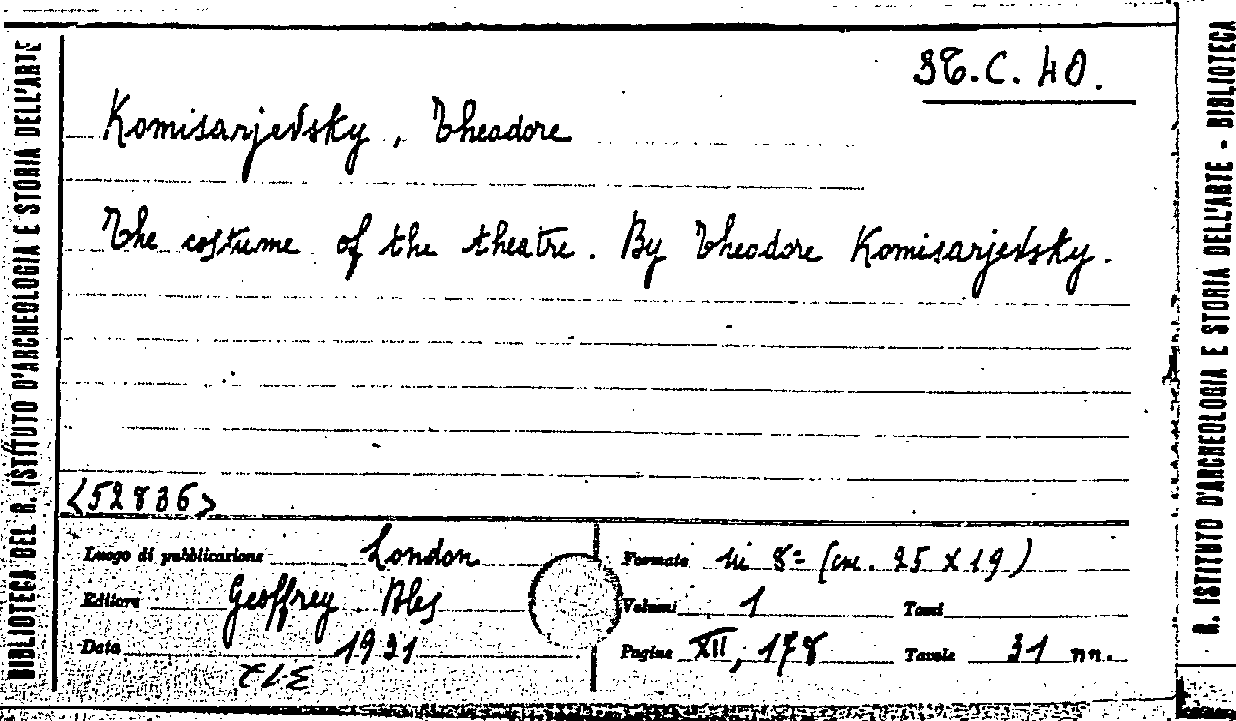 BIBLIOTECA DEL R. ISTITUTO D'ARCHEOLOGIA E STORIA DELL'ARTE
36.C.40.
Komisarjevsky, Theodore
The costume of the theatre. By Theodore Komisarjevsky.
<52836>
Luogo di pubblicazione London
Editore Geoffrey Bles
Data 1931
Formato in 8º (cm. 25 x 19)
Volumi 1 Tomi
Pagine XII, 178 Tavole 31 nn.
R. ISTITUTO D'ARCHEOLOGIA E STORIA DELL'ARTE - BIBLIOTECA